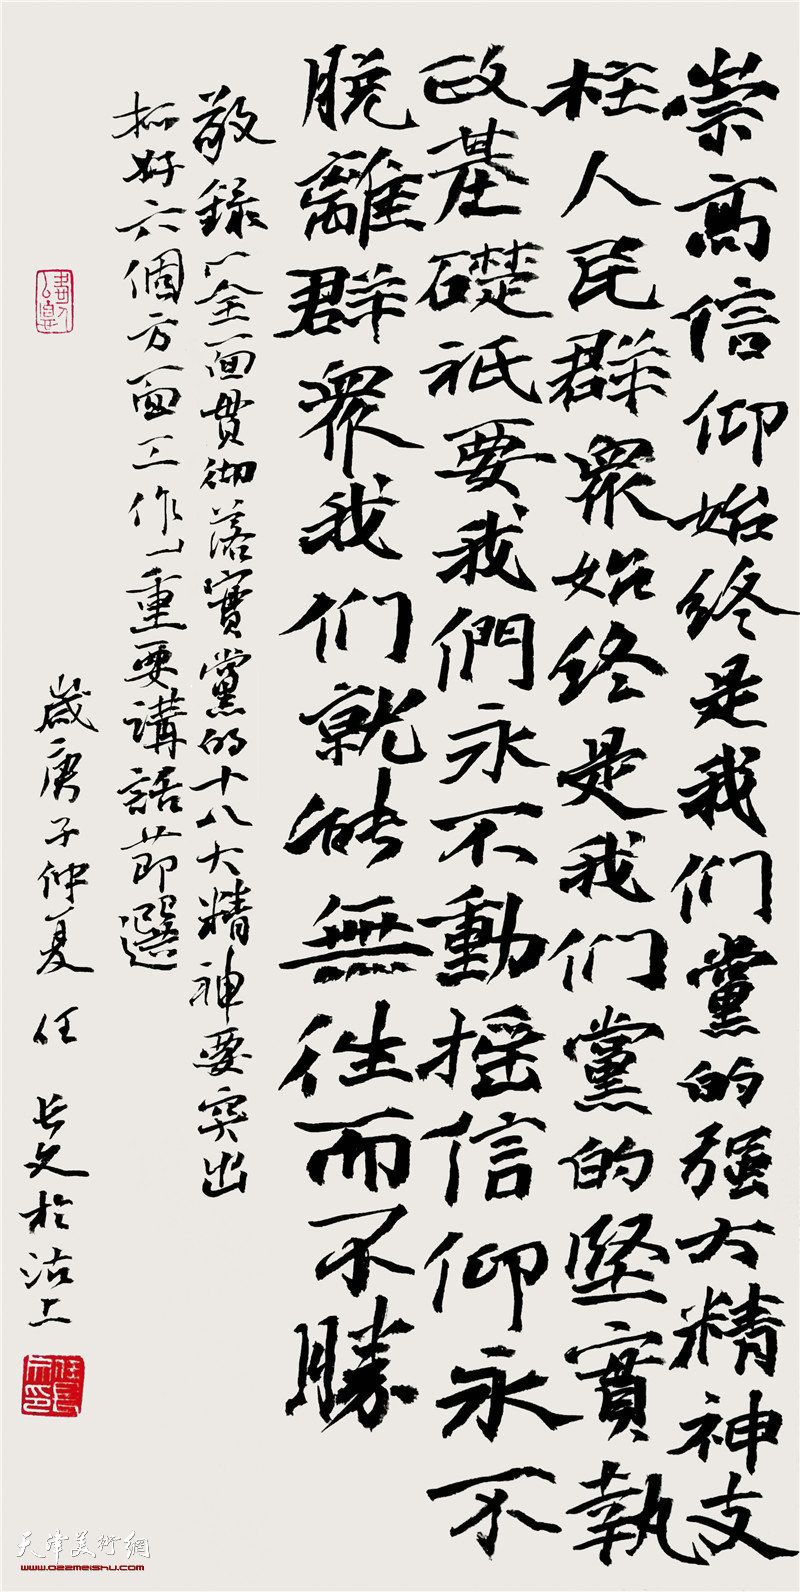 崇高信仰始终是我们黨的强大精神支
柱人民群眾始终是我们黨的堅實執
政基礎衹要我們永不動摇信仰永不
脱離群眾我们就能無往而不勝
敬録以全面貫彻落實黨的十八大精神要突出
抓好六個方面工作一重要講話節選
歲庚子仲夏任長文於沽上
天津美術網
www.022meishu.com